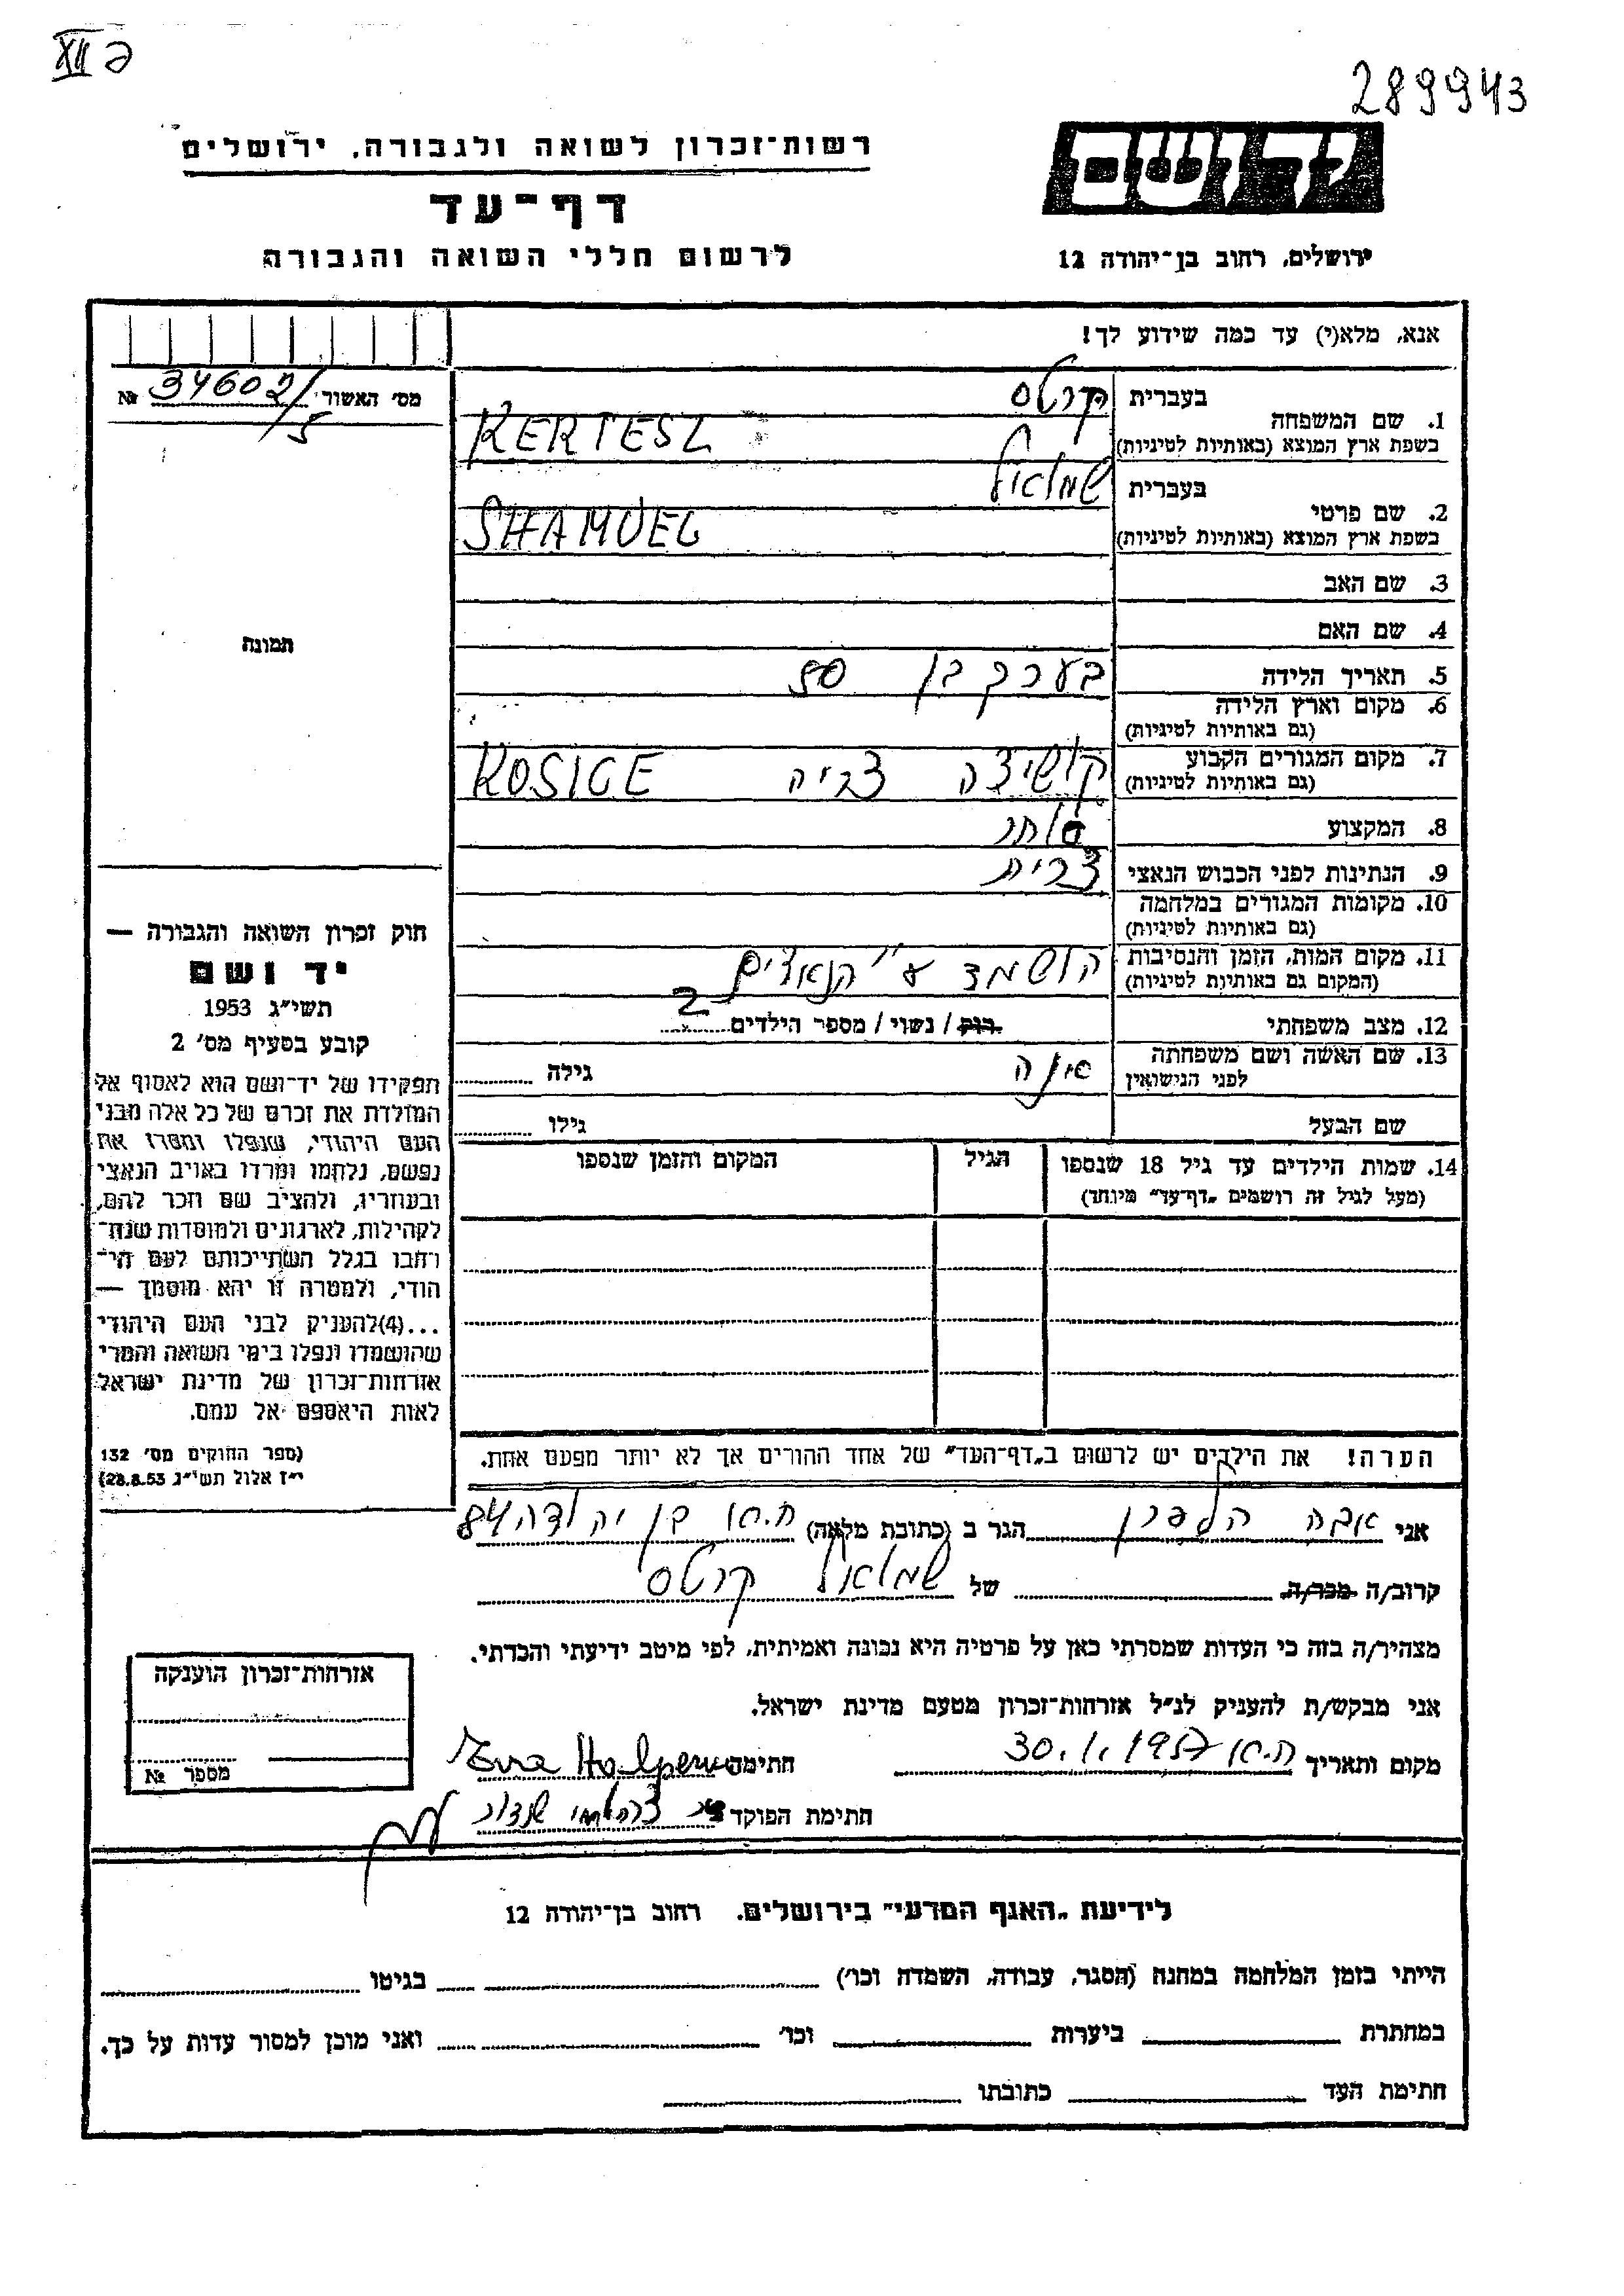 289943
יד ושם
רשות־זכרון לשואה ולגבורה, ירושלים
דף־עד
לרשום חללי השואה והגבורה
ירושלים, רחוב בן־יהודה 12
אנא, מלא(י) עד כמה שידוע לך!
מס׳ האשור № 34602/5
תמונה
1. שם המשפחה
בעברית קרטס
בשפת ארץ המוצא (באותיות לטיניות) KERTESZ
2. שם פרטי
בעברית שמואל
בשפת ארץ המוצא (באותיות לטיניות) SHAMUEL
3. שם האב
4. שם האם
5. תאריך הלידה בערך בן 50
6. מקום וארץ הלידה
(גם באותיות לטיניות)
7. מקום המגורים הקבוע קושיצה צכיה KOSICE
(גם באותיות לטיניות)
8. המקצוע סוחר
9. הנתינות לפני הכבוש הנאצי צכית
10. מקומות המגורים במלחמה
(גם באותיות לטיניות)
11. מקום המות, הזמן והנסיבות הושמד ע״י הנאצים
(המקום גם באותיות לטיניות)
12. מצב משפחתי רוק / נשוי / מספר הילדים 2
13. שם האשה ושם משפחתה
לפני הנישואין גילה
שם הבעל גילו
14. שמות הילדים עד גיל 18 שנספו הגיל המקום והזמן שנספו
(מעל לגיל זה רושמים „דף־עד״ מיוחד)
הערה! את הילדים יש לרשום ב„דף־העד״ של אחד ההורים אך לא יותר מפעם אחת.
חוק זכרון השואה והגבורה —
יד ושם
תשי״ג 1953
קובע בסעיף מס׳ 2
תפקידו של יד־ושם הוא לאסוף אל
המולדת את זכרם של כל אלה מבני
העם היהודי, שנפלו ומסרו את
נפשם, נלחמו ומרדו באויב הנאצי
ובעוזריו, ולהציב שם וזכר להם,
לקהילות, לארגונים ולמוסדות שנח־
רבו בגלל השתייכותם לעם הי־
הודי, ולמטרה זו יהא מוסמך —
...(4)להעניק לבני העם היהודי
שהושמדו ונפלו בימי השואה והמרי
אזרחות־זכרון של מדינת ישראל
לאות היאספם אל עמם.
(ספר החוקים מס׳ 132
י״ז אלול תשי״ג 28.8.53)
אני אוה הלפרן הגר ב (כתובת מלאה) ת.א. בן יהודה 84
קרוב/ה מכר/ה של שמואל קרטס
מצהיר/ה בזה כי העדות שמסרתי כאן על פרטיה היא נכונה ואמיתית, לפי מיטב ידיעתי והכרתי.
אני מבקש/ת להעניק לנ״ל אזרחות־זכרון מטעם מדינת ישראל.
מקום ותאריך ת.א. 30.1.1957 חתימה Eva Halpern
חתימת הפוקד
אזרחות־זכרון הוענקה
מספר №
לידיעת „האגף המדעי״ בירושלים, רחוב בן־יהודה 12
הייתי בזמן המלחמה במחנה (הסגר, עבודה, השמדה וכו׳) בגיטו
במחתרת ביערות וכו׳ ואני מוכן למסור עדות על כך.
חתימת העד כתובתו